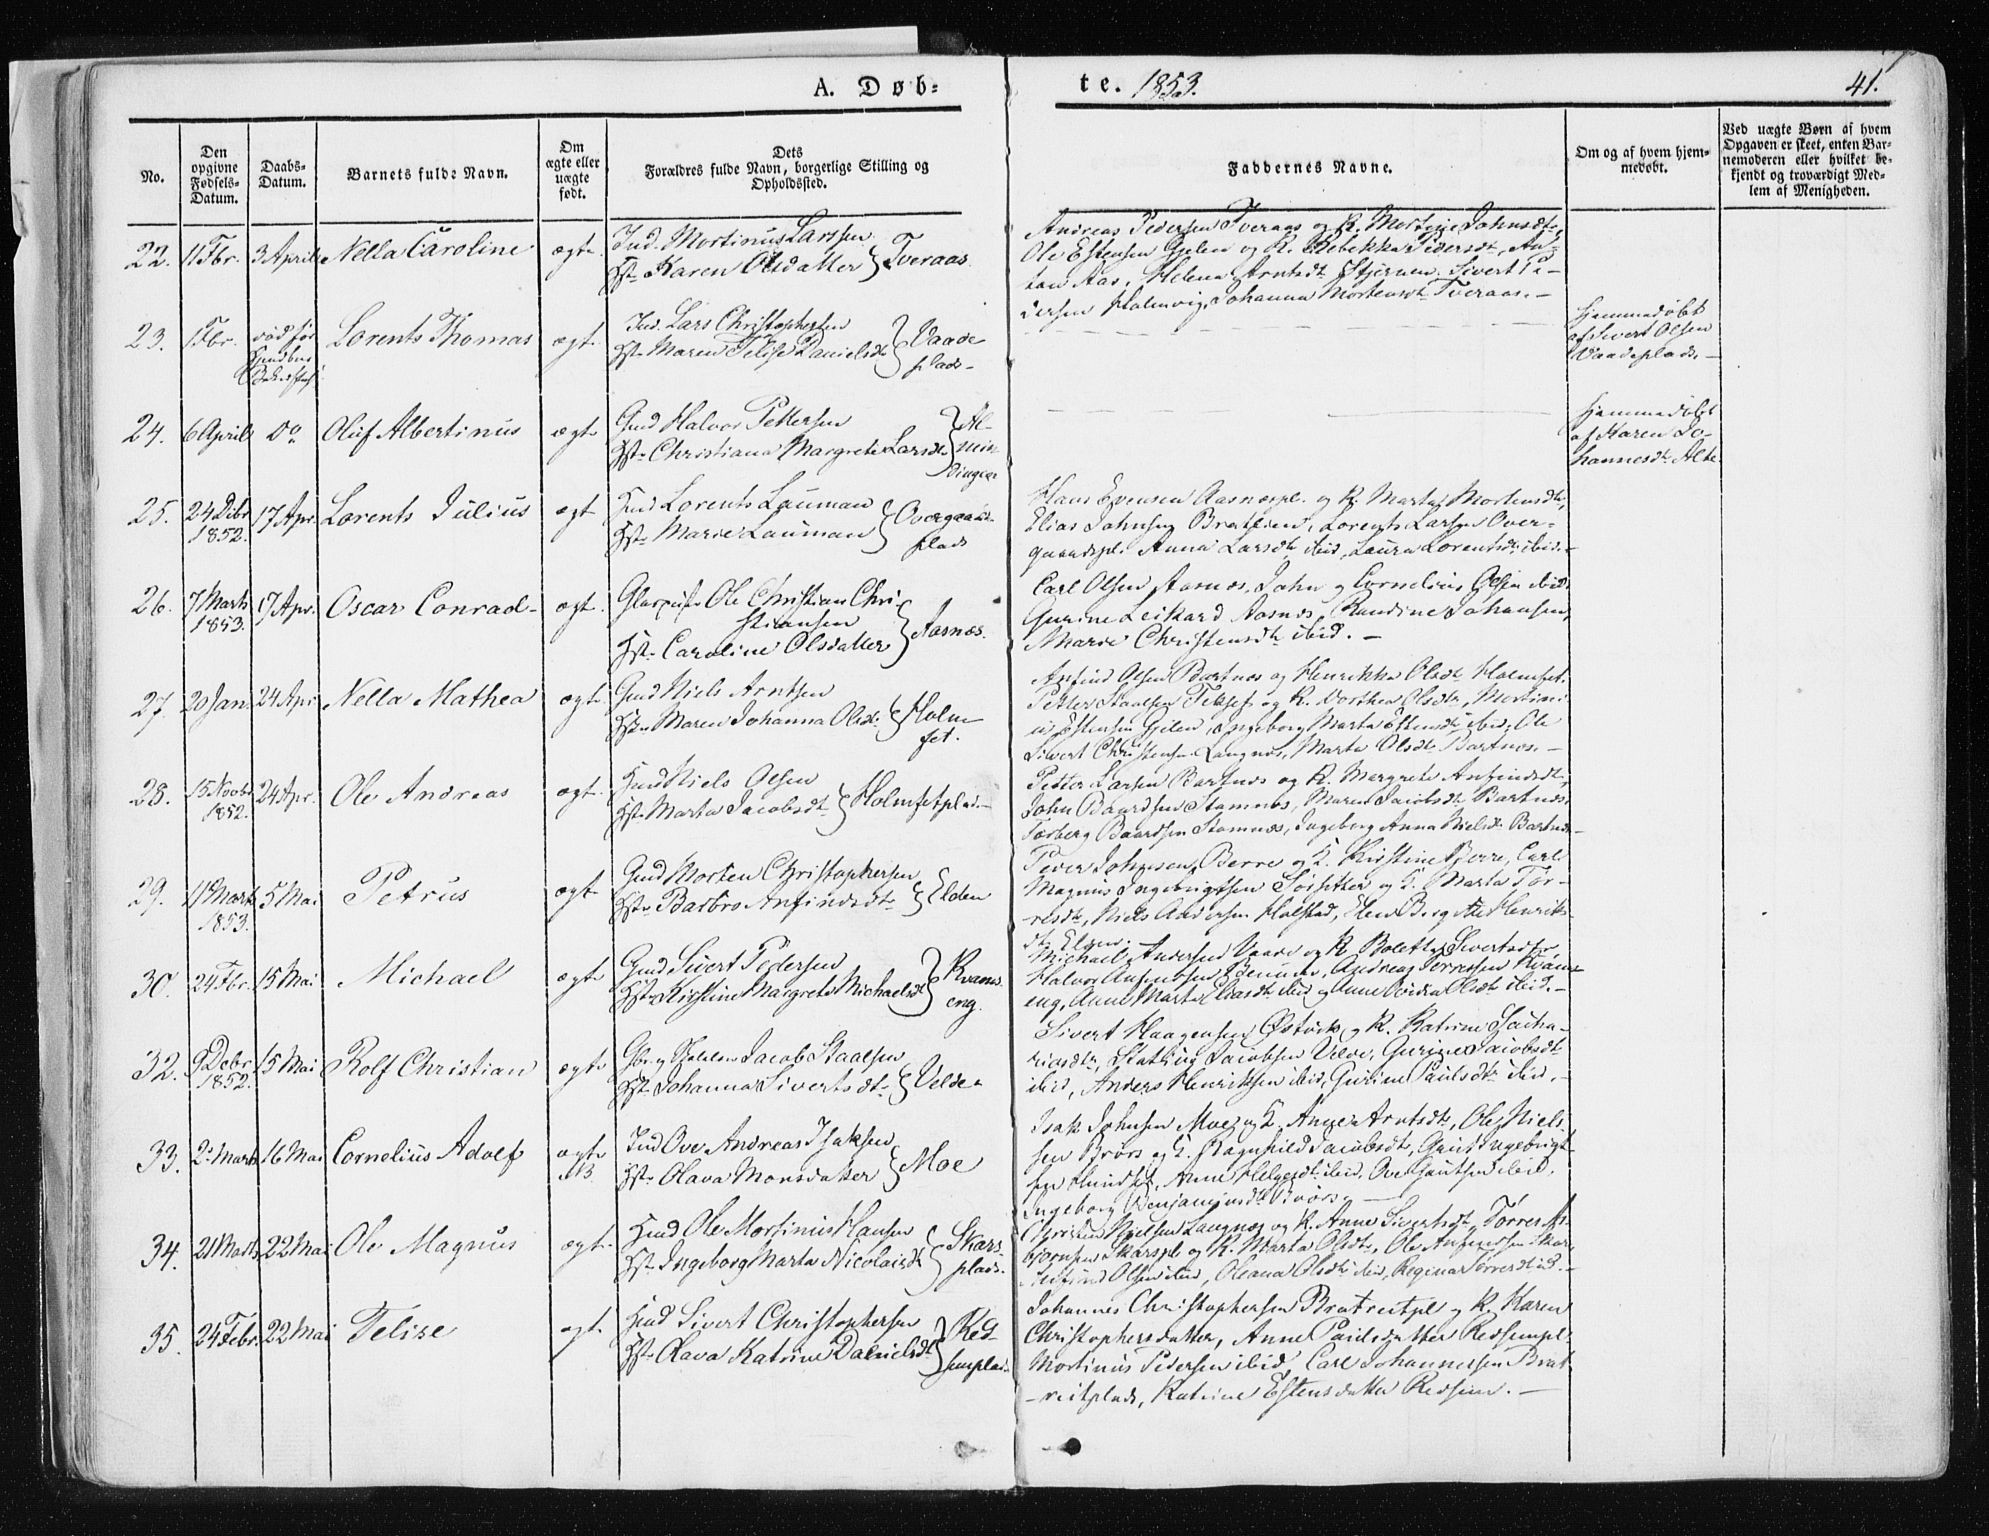 A. Døb-
te. 1853.
41.
No.
Den
opgivne
Fødsels-
Datum.
Daabs-
Datum.
Barnets fulde Navn.
Om
ægte eller
uægte
født.
Dets
Forældres fulde Navn, borgerlige Stilling og
Opholdssted.
Faddernes Navne.
Om og af hvem hjem-
medøbt.
Ved uægte Børn af hvem
Opgaven er skeet, enten Bar-
nemoderen eller hvilket be-
kjendt og troværdigt Med-
lem af Menigheden.
22. 11 Fbr. 3 April Nella Caroline ægte
Ind. Mortinus Larssen
Hst. Karen Olsdatter } Tveraas
Andreas Pedersen Tveraas og K. Johnsdtr,
Ole Estensen Gjelen og K. Rebekka Pedersdt, An-
ton Aas, Helena Arntsdt Stjernen, Sivert Pe-
dersen Holmvig, Johanna Mortensdt Tveraas. -
23. Fbr. død før
Lorents Thomas ægte
Ind. Lars Christophersen
Hst. Maren Felise Danielsdt } Vaade
plads
Hjemmedøbt
af Sivert Olsen
Vaadeplads. -
24. 6 April do. Oluf Albertinus ægte
Gmd Halvor Pettersen
Hst. Christiana Margrete Larsdt } Al-
min
dingen
Hjemmedøbt
af Karen Jo-
hannesdt
25. 24 Dcbr 17 Apr. Lorents Julius ægt
1852.
Hmd Lorents Lauman
Hst. Marie Lauman } Overgaards
plads
Hans Evensen Aasnæspl. og K. Marta Mortensdt,
Elias Johnsen Bratlien, Lorents Larsen Over-
gaardspl. Anna Larsdt ibid, Laura Lorentsdt ibid. -
26. 7 Marts 17 Apr. Oscar Conrad ægt.
1853.
Glaspust. Ole Christian Chri-
stiansen
Hst. Caroline Olsdatter } Aasnæs.
Carl Olsen Aasnæs, John og Cornelius Olsen ibid.
Gurine Leikard Aasnæs, Randine Johansen,
Marie Christensdt ibid. -
27. 20 Jan 24 Apr Nella Mathea ægt.
Gmd Niels Arntsen
Hst. Maren Johanna Olsdt } Holm-
fet.
Anfind Olsen Bartnæs og Henrikka Olsdt Holmfet.
Petter Staalsen og K. Dorthea Olsdtr,
Estensen Gjelen, Ingeborg Marta Estensdt ibid, Ole
Sivert Christensen Langnæs, Marta Olsdt Bartnæs. -
28. 15 Novbr 24 Apr. Ole Andreas ægt.
1852.
Hmd Niels Olsen
Hst. Marta Jacobsdt } Holmfetplads -
Petter Larsen Bartnæs og K. Margrete Anfindsdt,
John Baardsen Stamnæs, Maren Jacobsdt Bartnæs,
Torberg Baardsen Stamnæs, Ingeborg Anna Nielsdt Bartnæs -
29. 11 Marts 5 Mai Petrus ægt
1853.
Gmd Morten Christophersen
Hst. Barbro Anfindsdt } Elden
Peder Johnsen Berre og K. Kirstine Berre, Carl
Magnus Ingebrigtsen og K. Marta Tor-
resdt, Niels Andersen Holstad, Henriks-
dt Elden.
30. 24 Fbr. 15 Mai Michael ægt
Gmd Sivert Pedersen
Hst. Kirstine Margrete Michaelsdt } Kvams
eng.
Michael Andersen Vaade og K. Boletta Sivertsdtr,
Halvor Andreas Torressen Kvams-
eng, Anne Marta Eliasdt ibid og Anne Olsdt ibid. -
32. 9 Dcbr 15 Mai Rolf Christian ægt
1852.
Jacob Staalsen
Hst. Johanna Sivertsdt } Velde
Sivert Haagensen Østvik og K. Katrine Sacha-
riasdtr, Jacobsen Velde, Gurine Jacobsdt
ibid, Anders Henriksen ibid, Gurine Paulsdtr ibid. -
33. 2 Marts 16 Mai Cornelius Adolf ægte
NB
Ind Ove Andreas Isaksen
Hst. Olava Monsdatter } Moe
Isak Johnsen Moe og K. Arntsdt, Ole Niels-
sen Brørs og K. Ragnhild Jacobsdt, Gaut Ingebrigt-
sen Anne Helgesdt ibid, Ove Gautsen ibid,
Ingeborg Benjaminsdt Brørs -
34. 21 Marts 22 Mai Ole Magnus ægt.
Hmd Ole Mortinus Hansen
Hst. Ingeborg Marta Nicolaisdt } Skars-
plads.
Christen Nielsen Langnæs og K. Anne Sivertsdt, Torres As-
bjørnsen Skarspl og K. Marta Olsdt, Ole Anfindsen Skar,
Anfind Olsen ibid, Oleana Olsdt ibid, Regina Torresdt ibid. -
35. 24 Febr. 22 Mai Felise ægt.
Hmd Sivert Christophersen
Hst. Olava Katrine Danielsdt } Red-
semplads.
Johannes Christophersen Bratreitpl og K. Karen
Christophersdatter, Anne Paulsdatter Redsempl,
Mortinus Pedersen ibid, Carl Johannessen Brat-
reitplads, Katrine Estensdatter Redsem. -